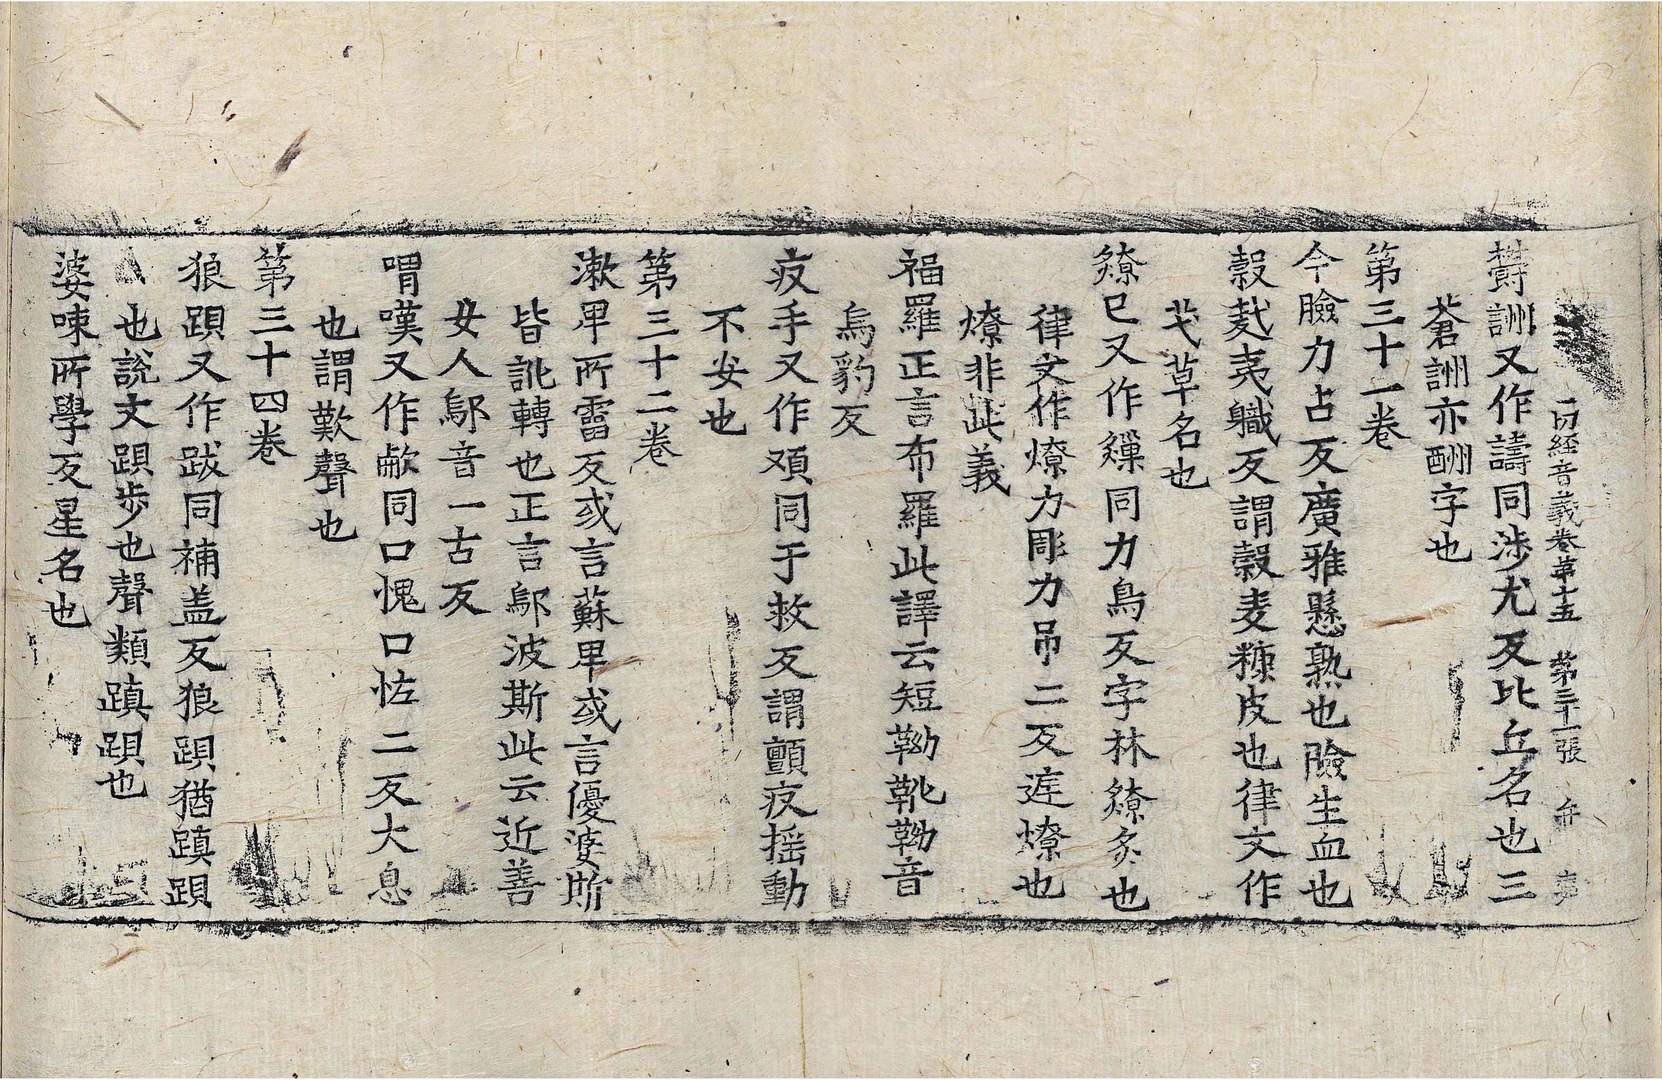 一切經音義卷第十五 第三十一張 弁
欝詶又作譸同涉尤反比丘名也三
蒼詶亦酬字也
第三十一卷
今臉力占反廣雅懸熟也臉生血也
㲉麧夷軄反謂㲉麦糠皮也律文作
弋草名也
䌛巳又作𦆯同力鳥反字林䌛炙也
律文作燎力彫力吊二反㢟燎也
燎非此義
福羅正言布羅此譯云短靿靴靿音
烏豹反
疚手又作頄同于救反謂顫疚揺動
不安也
第三十二卷
漱毘所霤反或言蘇毘或言優婆斯
皆訛轉也正言鄔波斯此云近善
女人鄔音一古反
喟嘆又作㕟同口愧口怪二反大息
也謂歎聲也
第三十四卷
狼跟又作跋同補盖反狼跟猶蹎跟
也說文跟步也聲類蹎跟也
婆㖨所學反星名也